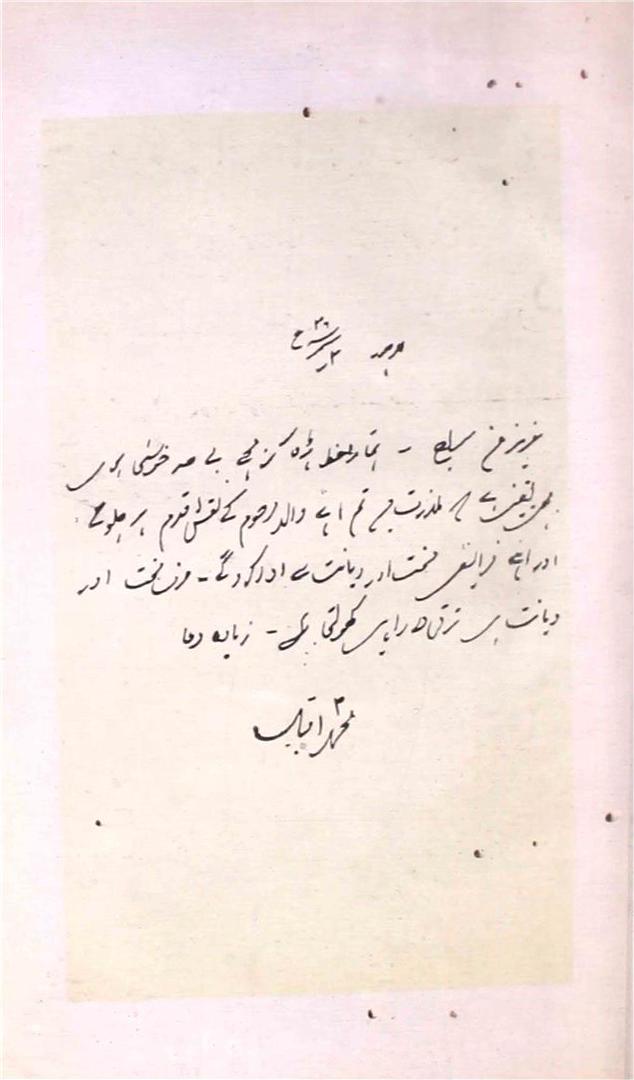 لاہور
عزیز من ـ تمہارا خط پڑھ کر مجھے بے حد خوشی ہوئی
مجھے یقین ہے کہ ملازمت میں تم اپنے والد مرحوم کے نقش قدم پر چلوگے
اور اپنے فرائض محنت اور دیانت سے ادا کروگے ـ صرف محنت اور
دیانت ہی ترقی کی راہیں کھولتی ہے ـ زیادہ دعا
محمد اقبال